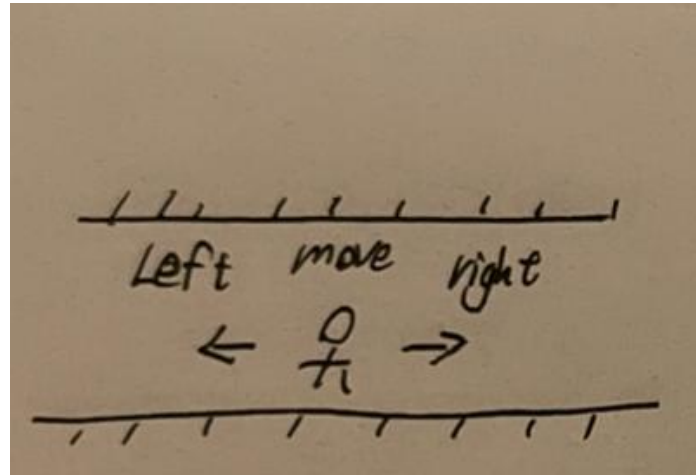 Left move right